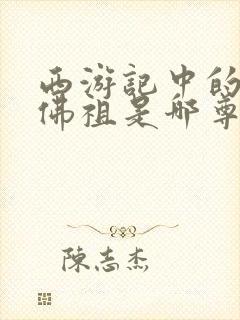 西游記中的
佛祖是哪尊
陳志杰